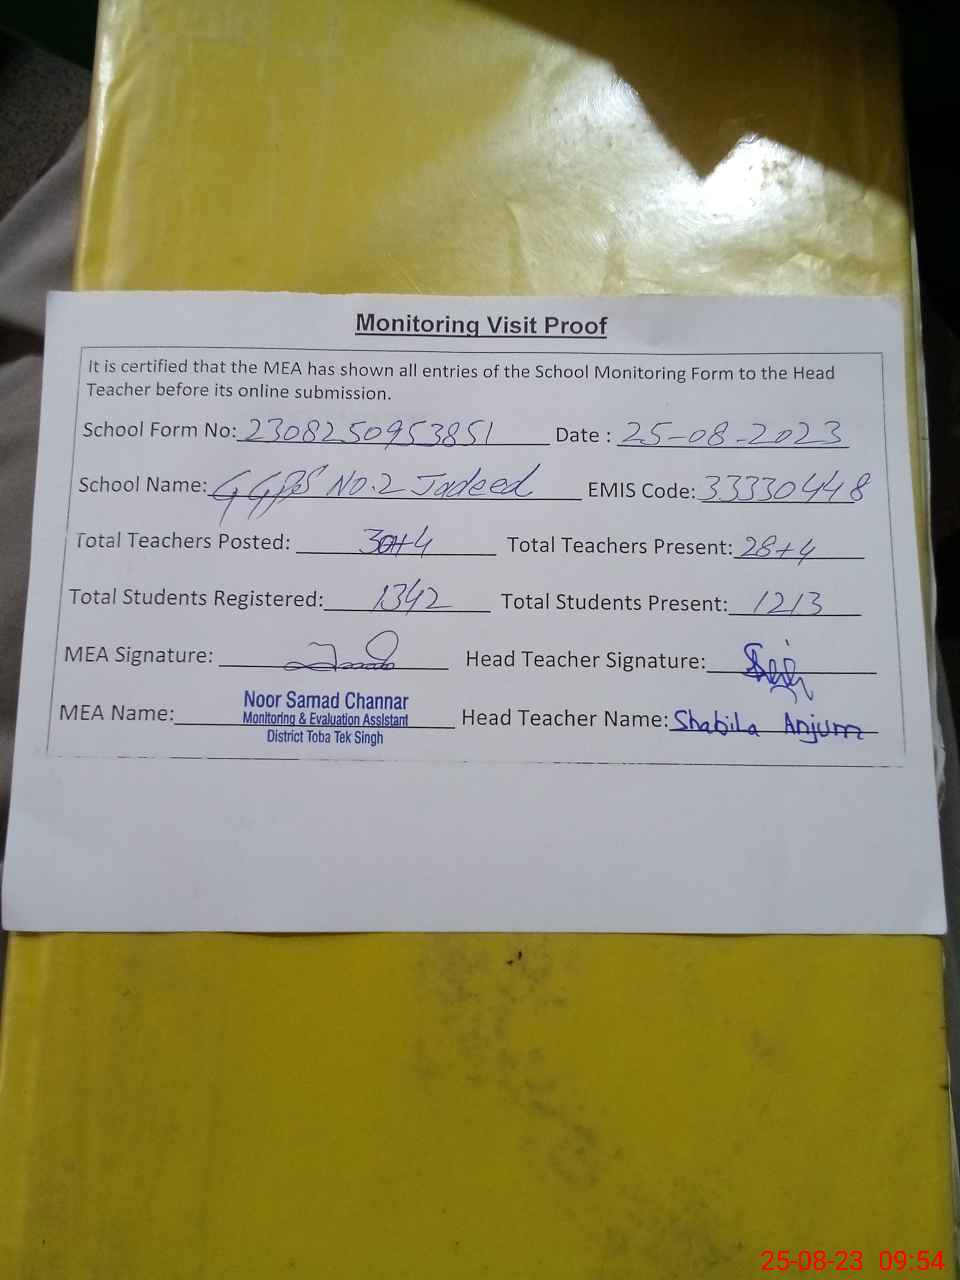 Monitoring Visit Proof
It is certified that the MEA has shown all entries of the School Monitoring Form to the Head
Teacher before its online submission.
School Form No: 2308250953851 Date : 25-08-2023
School Name: GGPS No.2 Jadeed EMIS Code: 33330448
Total Teachers Posted: 30+4 Total Teachers Present: 28+4
Total Students Registered: 1342 Total Students Present: 1213
MEA Signature: Head Teacher Signature:
MEA Name: Noor Samad Channar
Monitoring & Evaluation Assistant
District Toba Tek Singh
Head Teacher Name: Shabila Anjum
25-08-23 09:54